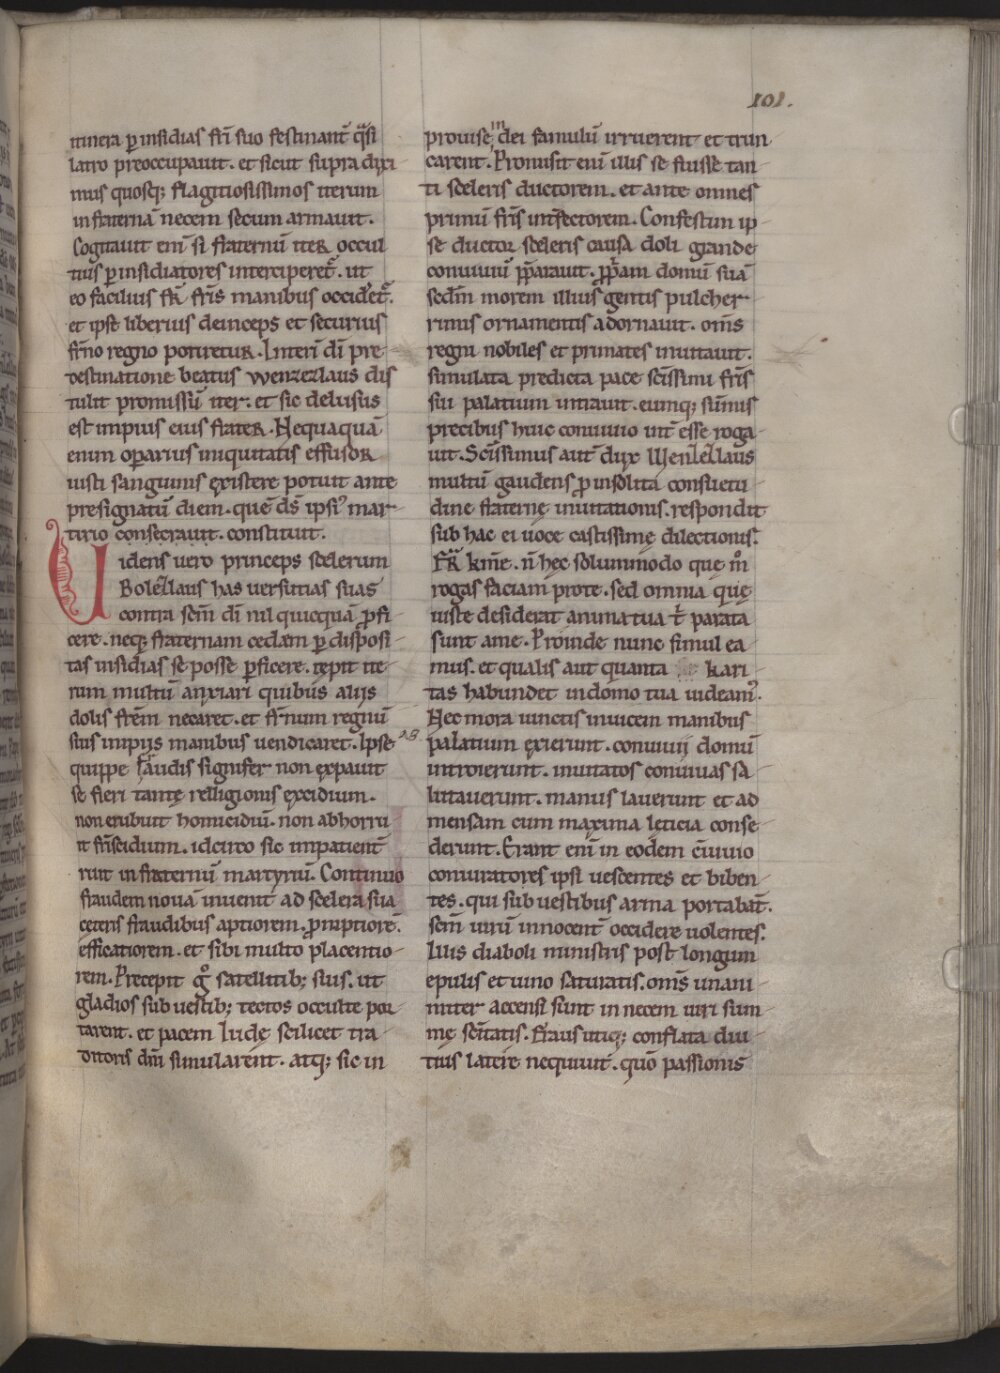 101.
itinera ꝑ insidias frī suo festinant᷑ q̃si
latro preoccupauit. et sicut supra dixi
mus quosq; flagitiosissimos iterum
in fraternā necem secum armauit.
Cogitauit eni᷑ si fraternū iter occul
tius ꝑ insidiatores interciperet᷑. ut
eo facilius fr̄ fr̄is manibus occideret᷑.
et ipse liberius deinceps et securius
fr̄no regno potiretur. Interi᷑ di᷑ pre
destinatione beatus wenzezlaus dis
tulit promissū iter. et sic delusus
est impius eius frater. Nequaquā
enim oꝑarius iniquitatis effusor
iusti sanguinis existere potuit ante
presignatū diem. que᷑ ds̄ ipsi' mar
tirio consecrauit. constituit.
Uidens uero princeps scelerum
Bolezlaus has uersutias suas
contra scm̄ di᷑ nil quicquā ꝓfi
cere. neq; fraternam cedem ꝑ disposi
tas insidias se posse ꝑficere. cepit ite
rum multū anxiari quibus alijs
dolis fr̄em necaret. et fr̄num regnū
suis impijs manibus uendicaret. Ipse
quippe fraudis signifer non expauit
se fieri tantę relligionis excidium.
non erubuit homicidiū. non abhorru
it fr̄icidium. idcirco sic impatient᷑
ruit in fraternū martyriū. Continuo
fraudem nouā inuenit ad scelera sua
ceteris fraudibus aptiorem. ꝓmptiore᷑.
efficatiorem. et sibi multo placentio
rem. Precepit g° satellitib; suis. ut
gladios sub uestib; tectos occulte por
tarent. et pacem Iudę scilicet tra
ditoris dn̄i simularent. atq; sic in
prouise in dei famulū irruerent et trun
carent. Promisit eni᷑ illis se fuisse tan
ti sceleris ductorem. et ante omnes
primū fr̄is int᷑fectorem. Confestim ip
se ductor sceleris causa doli grande
conuiuiū p̄parauit. ꝓp̄am domū suā
scdm̄ morem illius gentis pulcher
rimis ornamentis adornauit. om̄s
regni nobiles et primates inuitauit.
simulata predicta pace scīssimi fr̄is
sui palatium intrauit. eumq; sūmis
precibus huic conuiuio int᷑ esse roga
uit. Scīssimus aut᷑ dux Wenzezlaus
multū gaudens ꝓ insolita consuetu
dine fraternę inuitationis. respondit
sub hac ei uoce castissimę dilectionis.
Fr̄ km̄e. n̄ hęc solummodo que m°
rogas faciam pro te. sed omnia quę
iuste desiderat anima tua t᷑ parata
sunt a me. Proinde nunc simul ea
mus. et qualis aut quanta kari
tas habundet in domo tua uideam'.
Nec mora iunctis inuicem manibus
palatium exierunt. conuiuij domū
introierunt. inuitatos conuiuas sa
lutauerunt. manus lauerunt et ad
mensam cum maxima lęticia conse
derunt. Erant eni᷑ in eodem c̄uiuio
coniuratores ipsi uescentes et biben
tes. qui sub uestibus arma portabāt.
scm̄ uirū innocent᷑ occidere uolentes.
Illis diaboli ministris post longum
epulis et uino saturatis. om̄s unani
miter accensi sunt in necem uiri sum
mę sc̄itatis. Fraus utiq; conflata diu
tius latere nequiuit. quō passionis